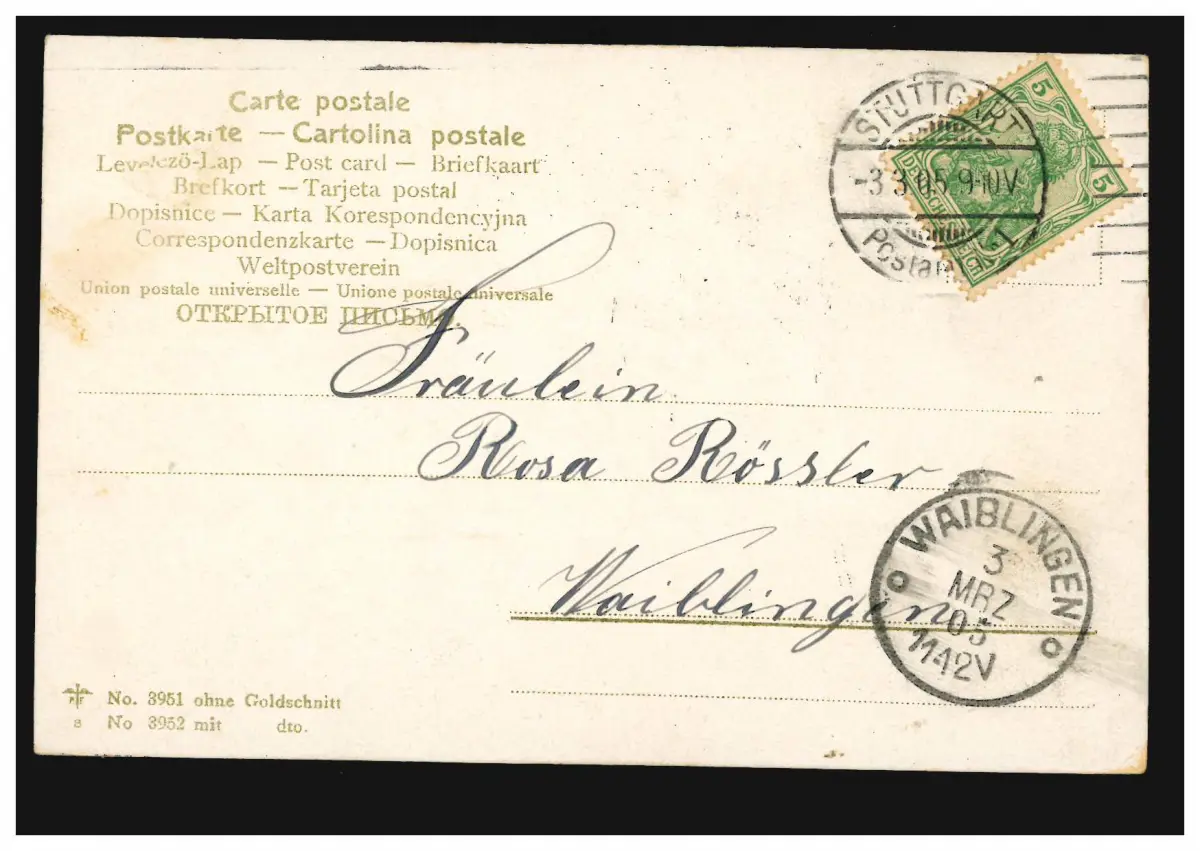 Carte postale
Postkarte — Cartolina postale
Levelező-Lap — Post card — Briefkaart
Brefkort — Tarjeta postal
Dopisnice — Karta Korespondencyjna
Correspondenzkarte — Dopisnica
Weltpostverein
Union postale universelle — Unione postale universale
ОТКРЫТОЕ ПИСЬМО.
STUTTGART
-3.3.05.9-10V.
1
5
5
DEUTSCHES REICH
Fräulein
Rosa Rössler
Waiblingen
WAIBLINGEN
3
MRZ
05
1142V
No. 3951 ohne Goldschnitt
a No 3952 mit dto.